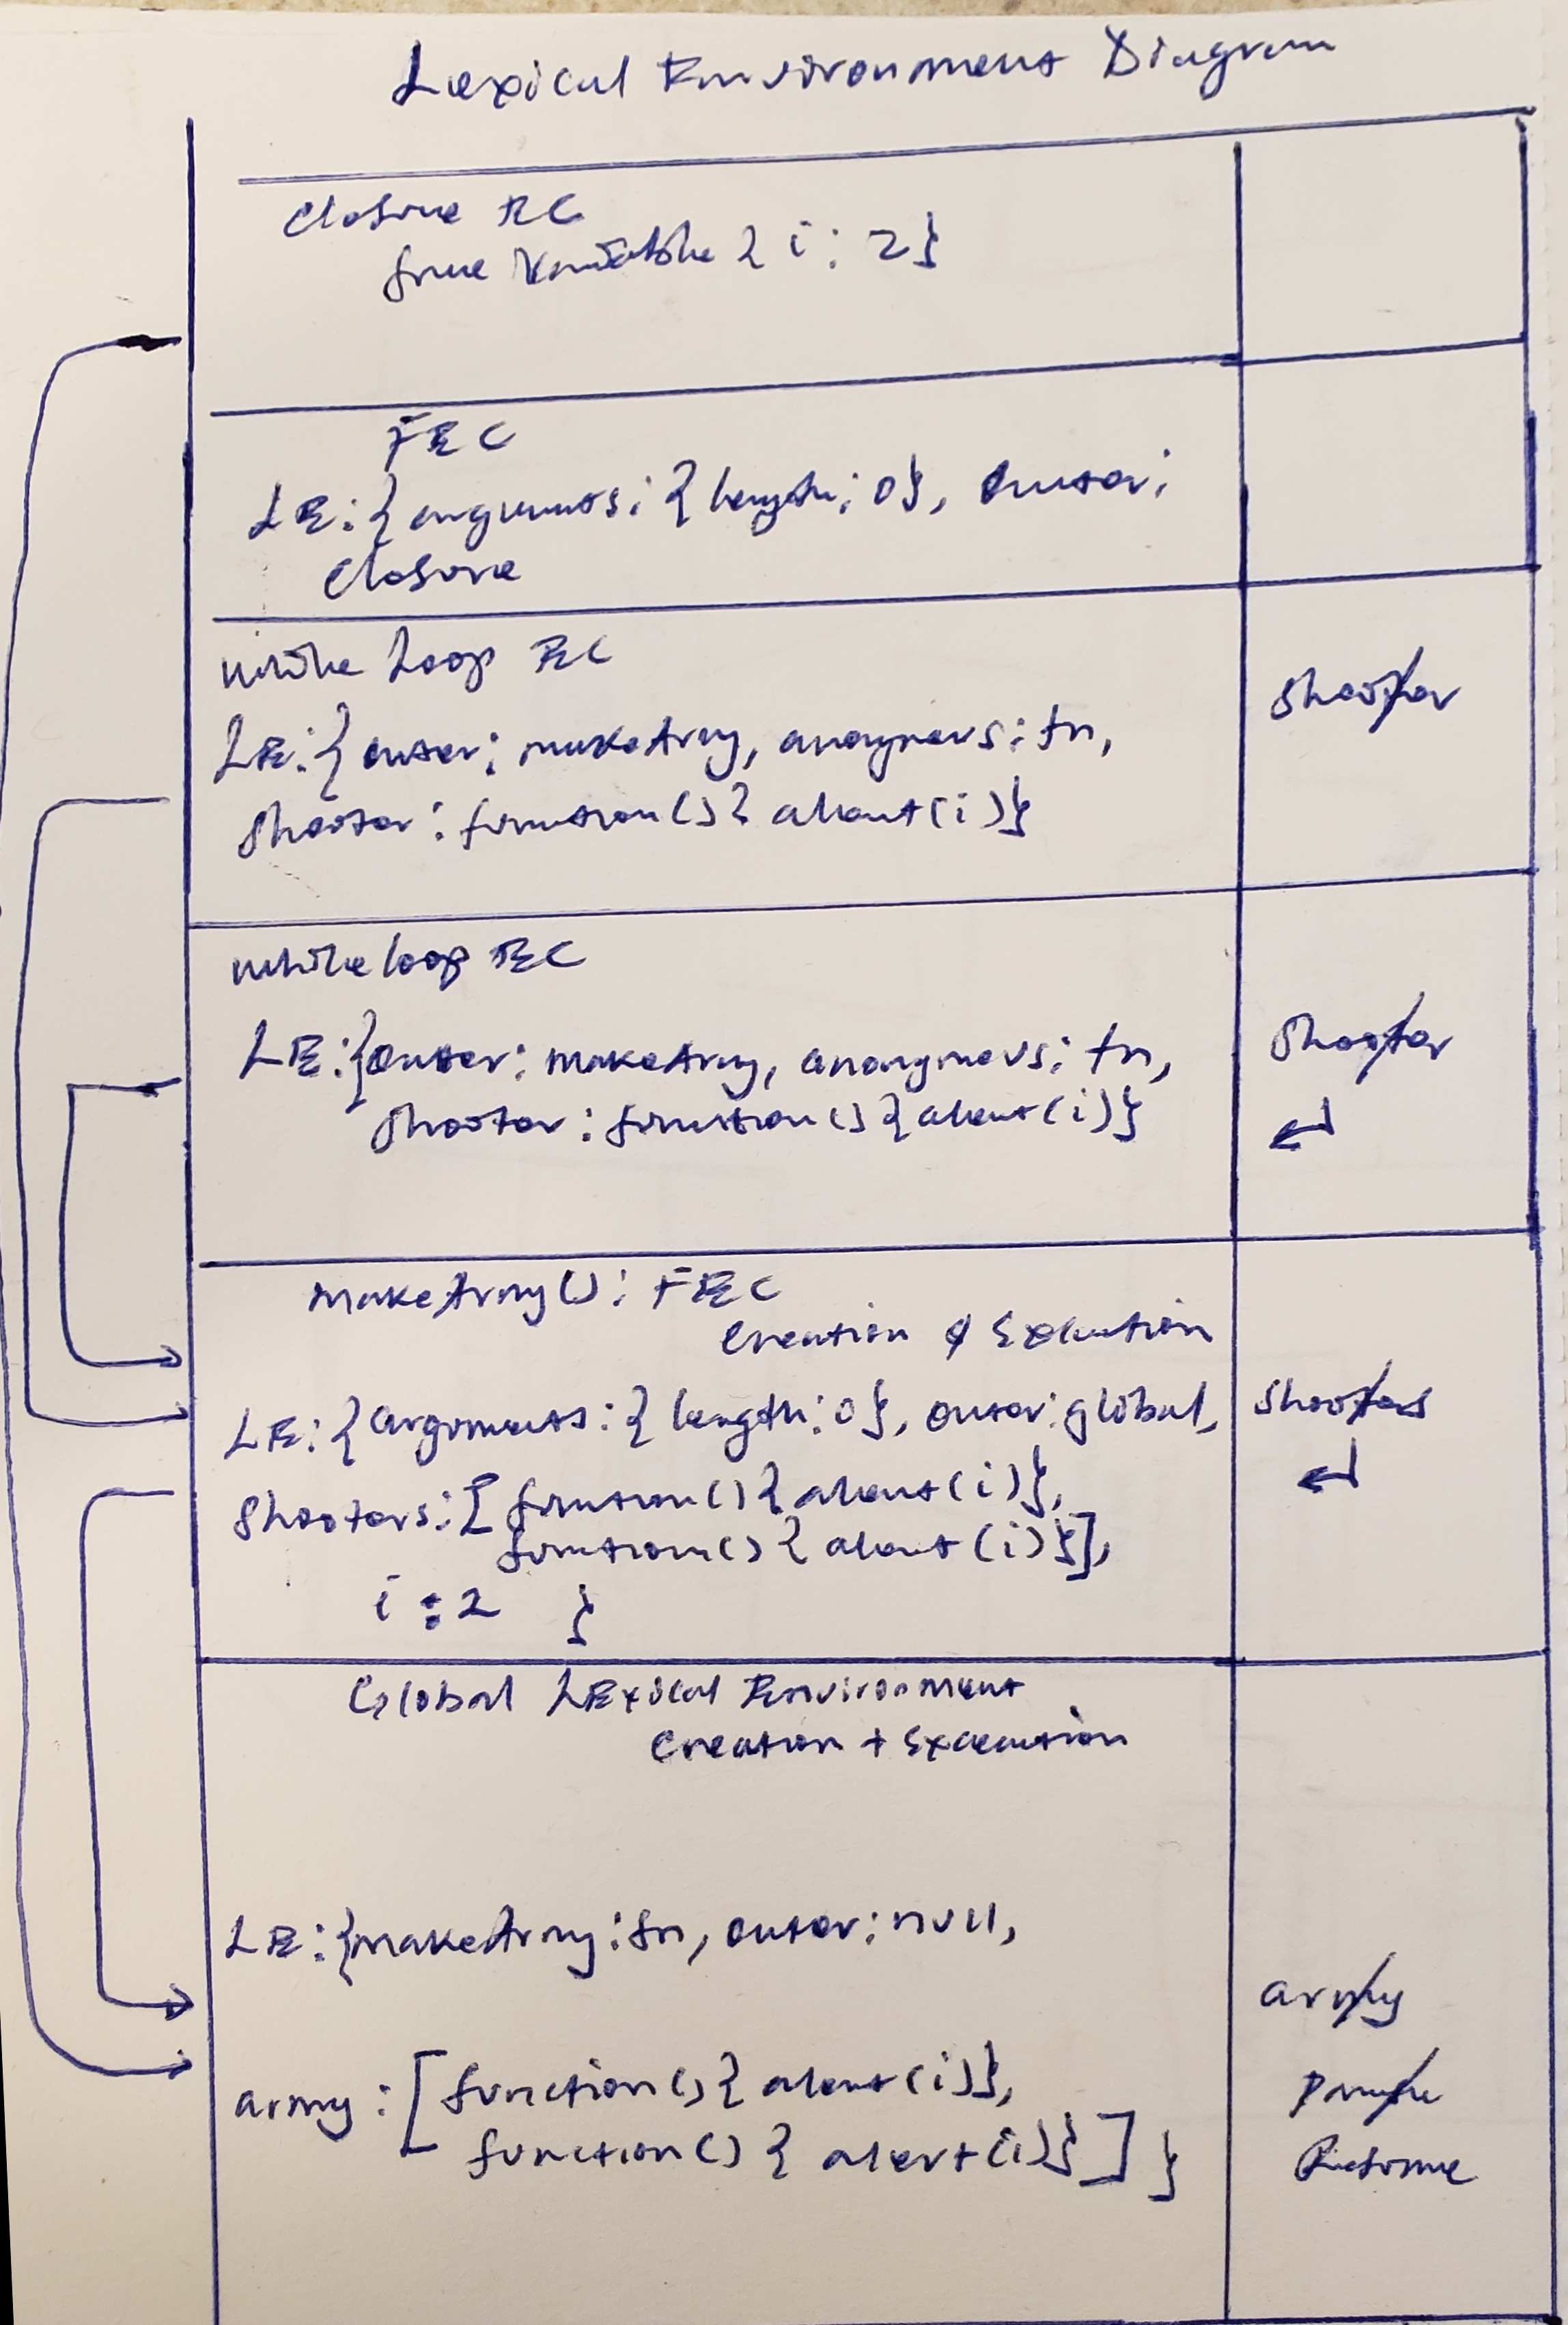 Lexical Environment Diagram
Closure EC
free Variable { i : 2}
FEC
LE: { arguments: { length: 0}, outer:
Closure
while Loop EC
LE: { outer: makeArmy, anonymous: fn,
shooter: function() { alert(i)}
shooter
while loop EC
LE: {outer: makeArmy, anonymous: fn,
shooter: function() { alert(i)}
shooter
makeArmy(): FEC
Creation & Execution
LE: { arguments: { length: 0}, outer: global,
shooters: [ function() { alert(i)},
function() { alert(i)}],
i : 2 }
shooters
Global LExical Environment
Creation + Execution
LE: {makeArmy: fn, outer: null,
army: [ function() { alert(i)},
function() { alert(i)} ] }
army